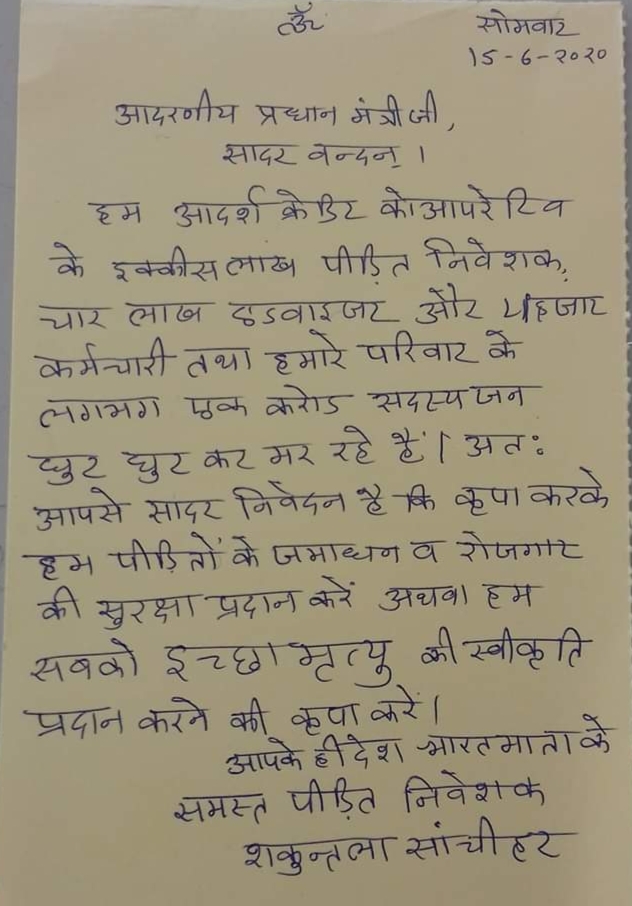 ॐ
सोमवार
15-6-2020
आदरणीय प्रधान मंत्रीजी,
सादर वन्दन् ।
हम आदर्श क्रेडिट कोआपरेटिव
के इक्कीस लाख पीड़ित निवेशक,
चार लाख एडवाइजर और 4हजार
कर्मचारी तथा हमारे परिवार के
लगभग एक करोड सदस्य जन
घुट घुट कर मर रहे हैं। अतः
आपसे सादर निवेदन है कि कृपा करके
हम पीड़ितों के जमाधन व रोजगार
की सुरक्षा प्रदान करें अथवा हम
सबको इच्छा मृत्यु की स्वीकृति
प्रदान करने की कृपा करें।
आपके ही देश भारतमाता के
समस्त पीड़ित निवेशक
शकुन्तला सांचीहर